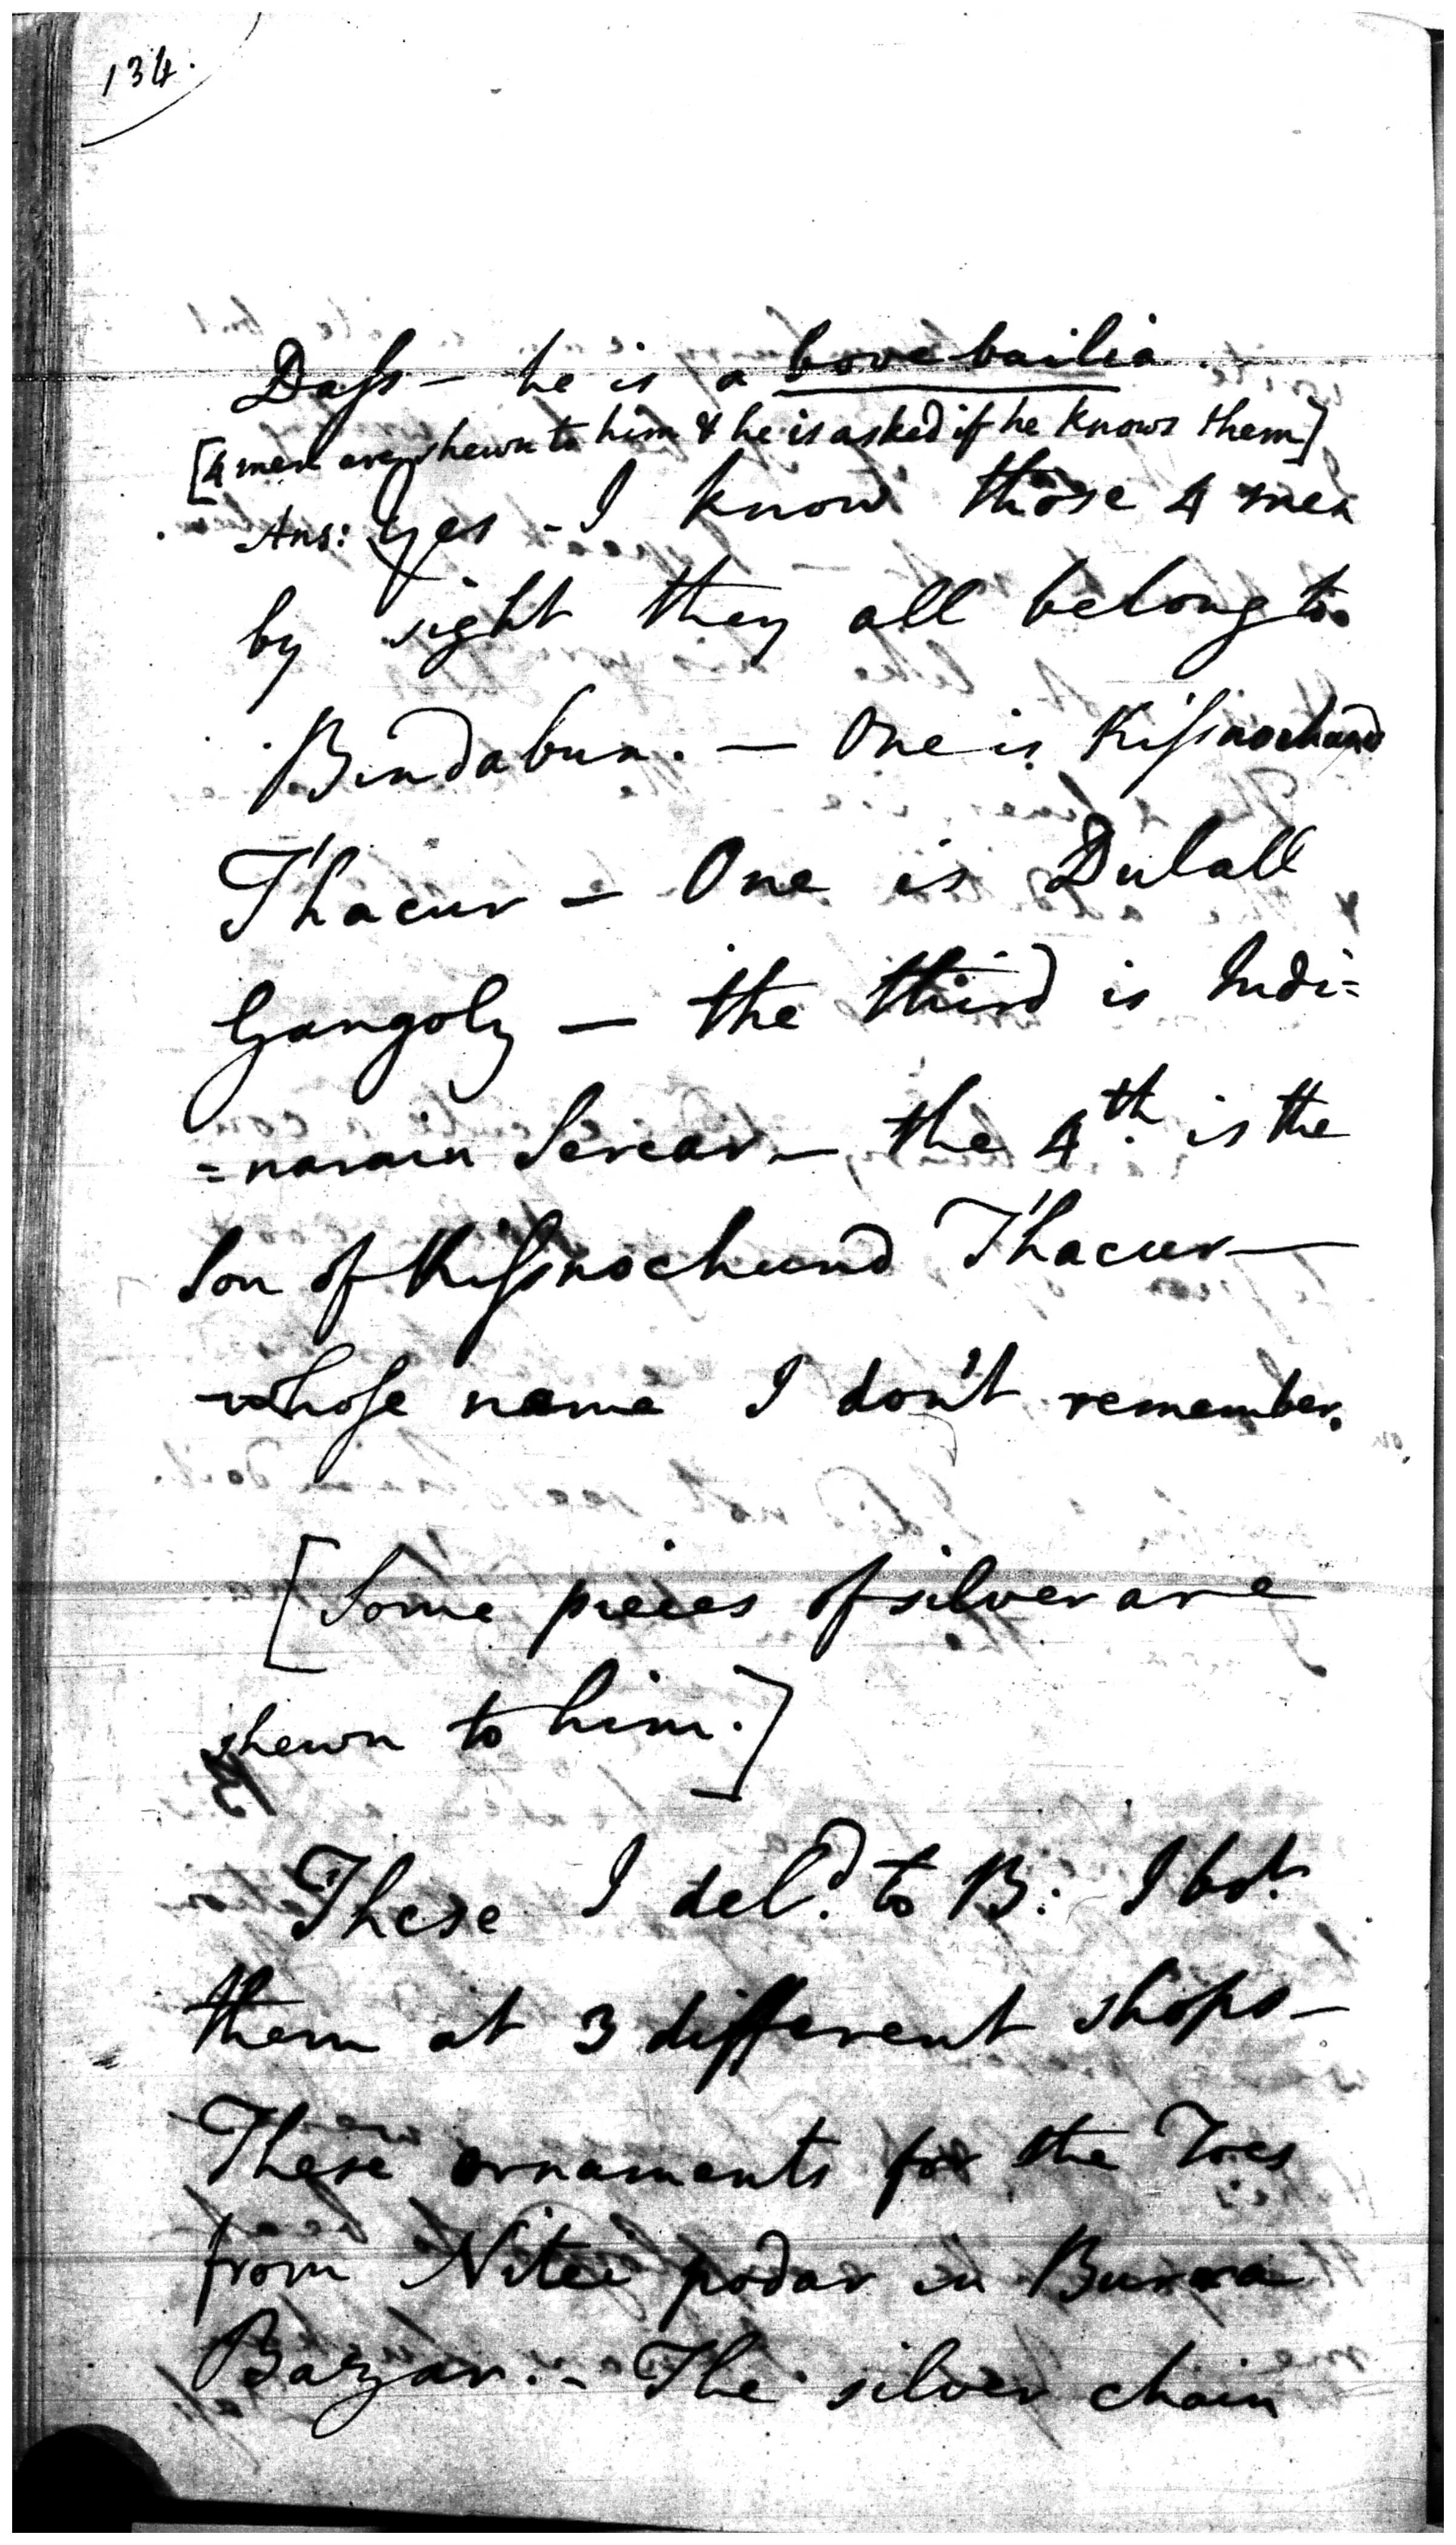 134.
Dass — he is a bove bailia
[4 men are shewn to him & he is asked if he knows them]
Ans: Yes - I know those 4 men
by sight they all belong to
Bindabun. — One is Kissnochund
Thacur — One is Dulall
Gangoly — the third is Indi=
=narain Sercar — the 4th. is the
Son of Kissnochund Thacur —
whose name I don't remember.
[Some pieces of silver are
shewn to him.]
These I deld. to B: I bot.
them at 3 different shops —
These ornaments for the Toes
from Nitei podar in Burra
Bazar. - The silver chain